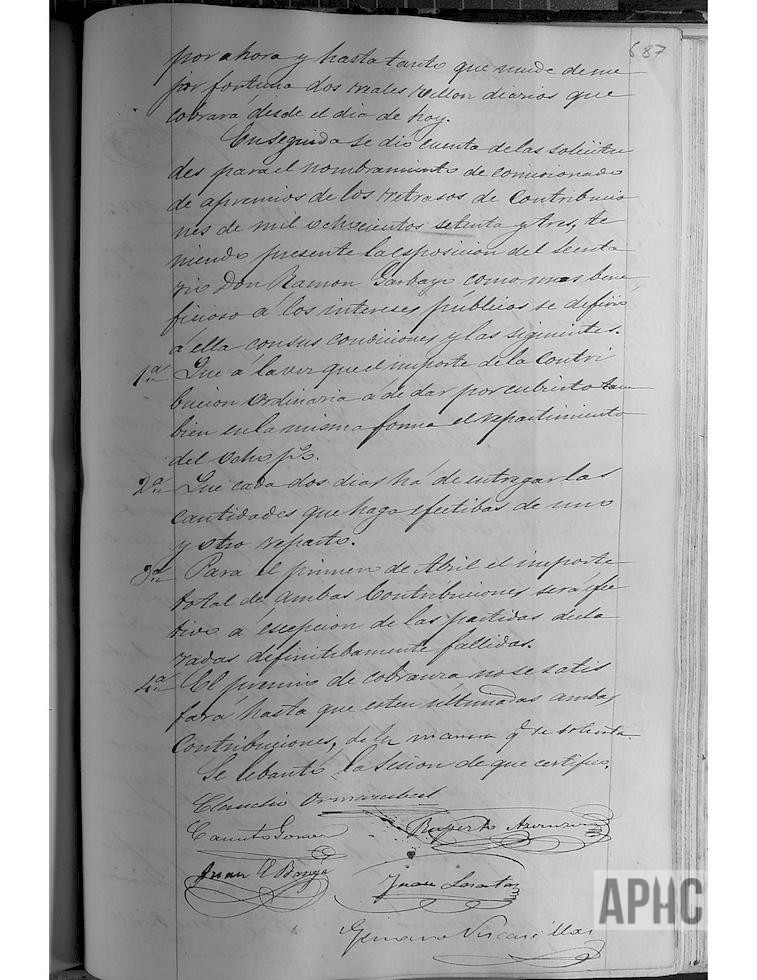 687
por ahora y hasta tanto que mude de me
jor fortuna dos reales vellon diarios que
cobrará desde el dia de hoy.
Enseguida se dió cuenta de las solicitu
des para el nombramiento de comisionado
de apremios de los retrasos de Contribucio
nes de mil ochocientos setenta y tres, te
niendo presente la esposicion del Secreta
rio Don Ramon Garbayo como mas bene
ficioso á los intereses públicos se defirió
á ella con sus condiciones y las siguientes.
1.a Que á la vez que el importe de la Contri
bucion Ordinaria á de dar por cubierto tam
bien en la misma forma el repartimiento
del Ocho p%.
2.a Que cada dos dias há de entregar las
cantidades que haga efectibas de uno
y otro reparto.
3.a Para el primero de Abril el importe
total de ambas Contribuciones será efec
tivo á escepcion de las partidas decla
radas difinitibamente fallidas.
4.a El premio de cobranza no se satis
fará hasta que esten ultimadas ambas
Contribuciones, de la manera q.e se solicita.
Se lebantó la sesion de que certifico.
Claudio
Canuto Gomez
Ruperto
Juan E Borja
Juan
APHC